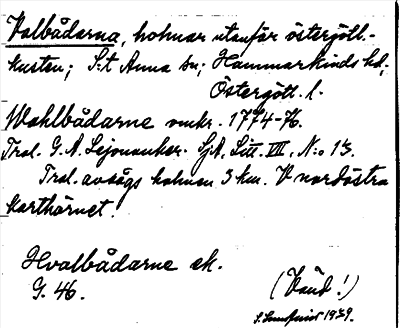 Valbådarna, holmar utanför östergötl.-
kusten; S:t Anna sn; Hammarkinds hd,
Östergötl. l.
Wahlbådarne omkr. 1774-76.
Trol. G. A. Lejonanker. SjK, Litt. VIII, N:o 13.
Trol. avsågs holmen 3 km. V nordöstra
karthörnet.
Hvalbådarne ek.
G. 46.
(Vänd!)
1939.